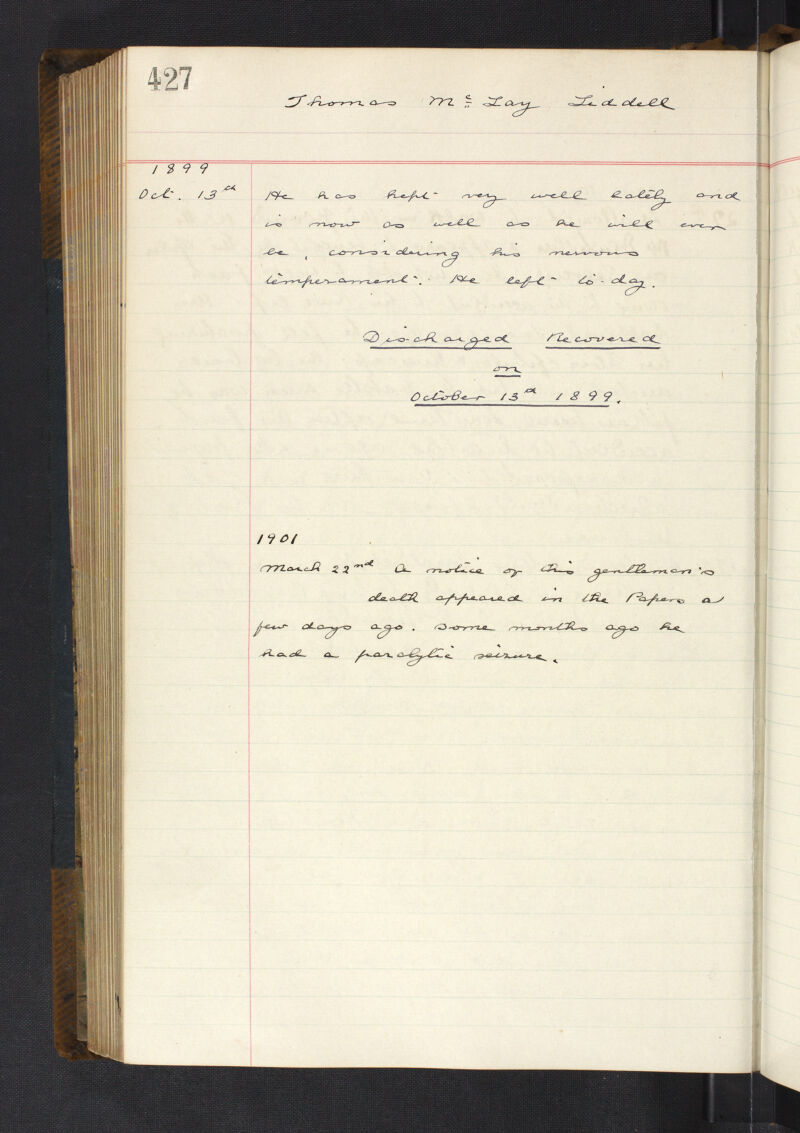 427
Thomas Mc Lay Liddell
1899
Oct. 13th He has kept very well lately and
is now as well as he will ever
be, considering his nervous
temperament. He left to-day.
Discharged Recovered
on
October 13th 1899.
1901
March 22nd A notice of this gentleman's
death appeared in the Papers a
few days ago. Some months ago he
had a paralytic seizure.